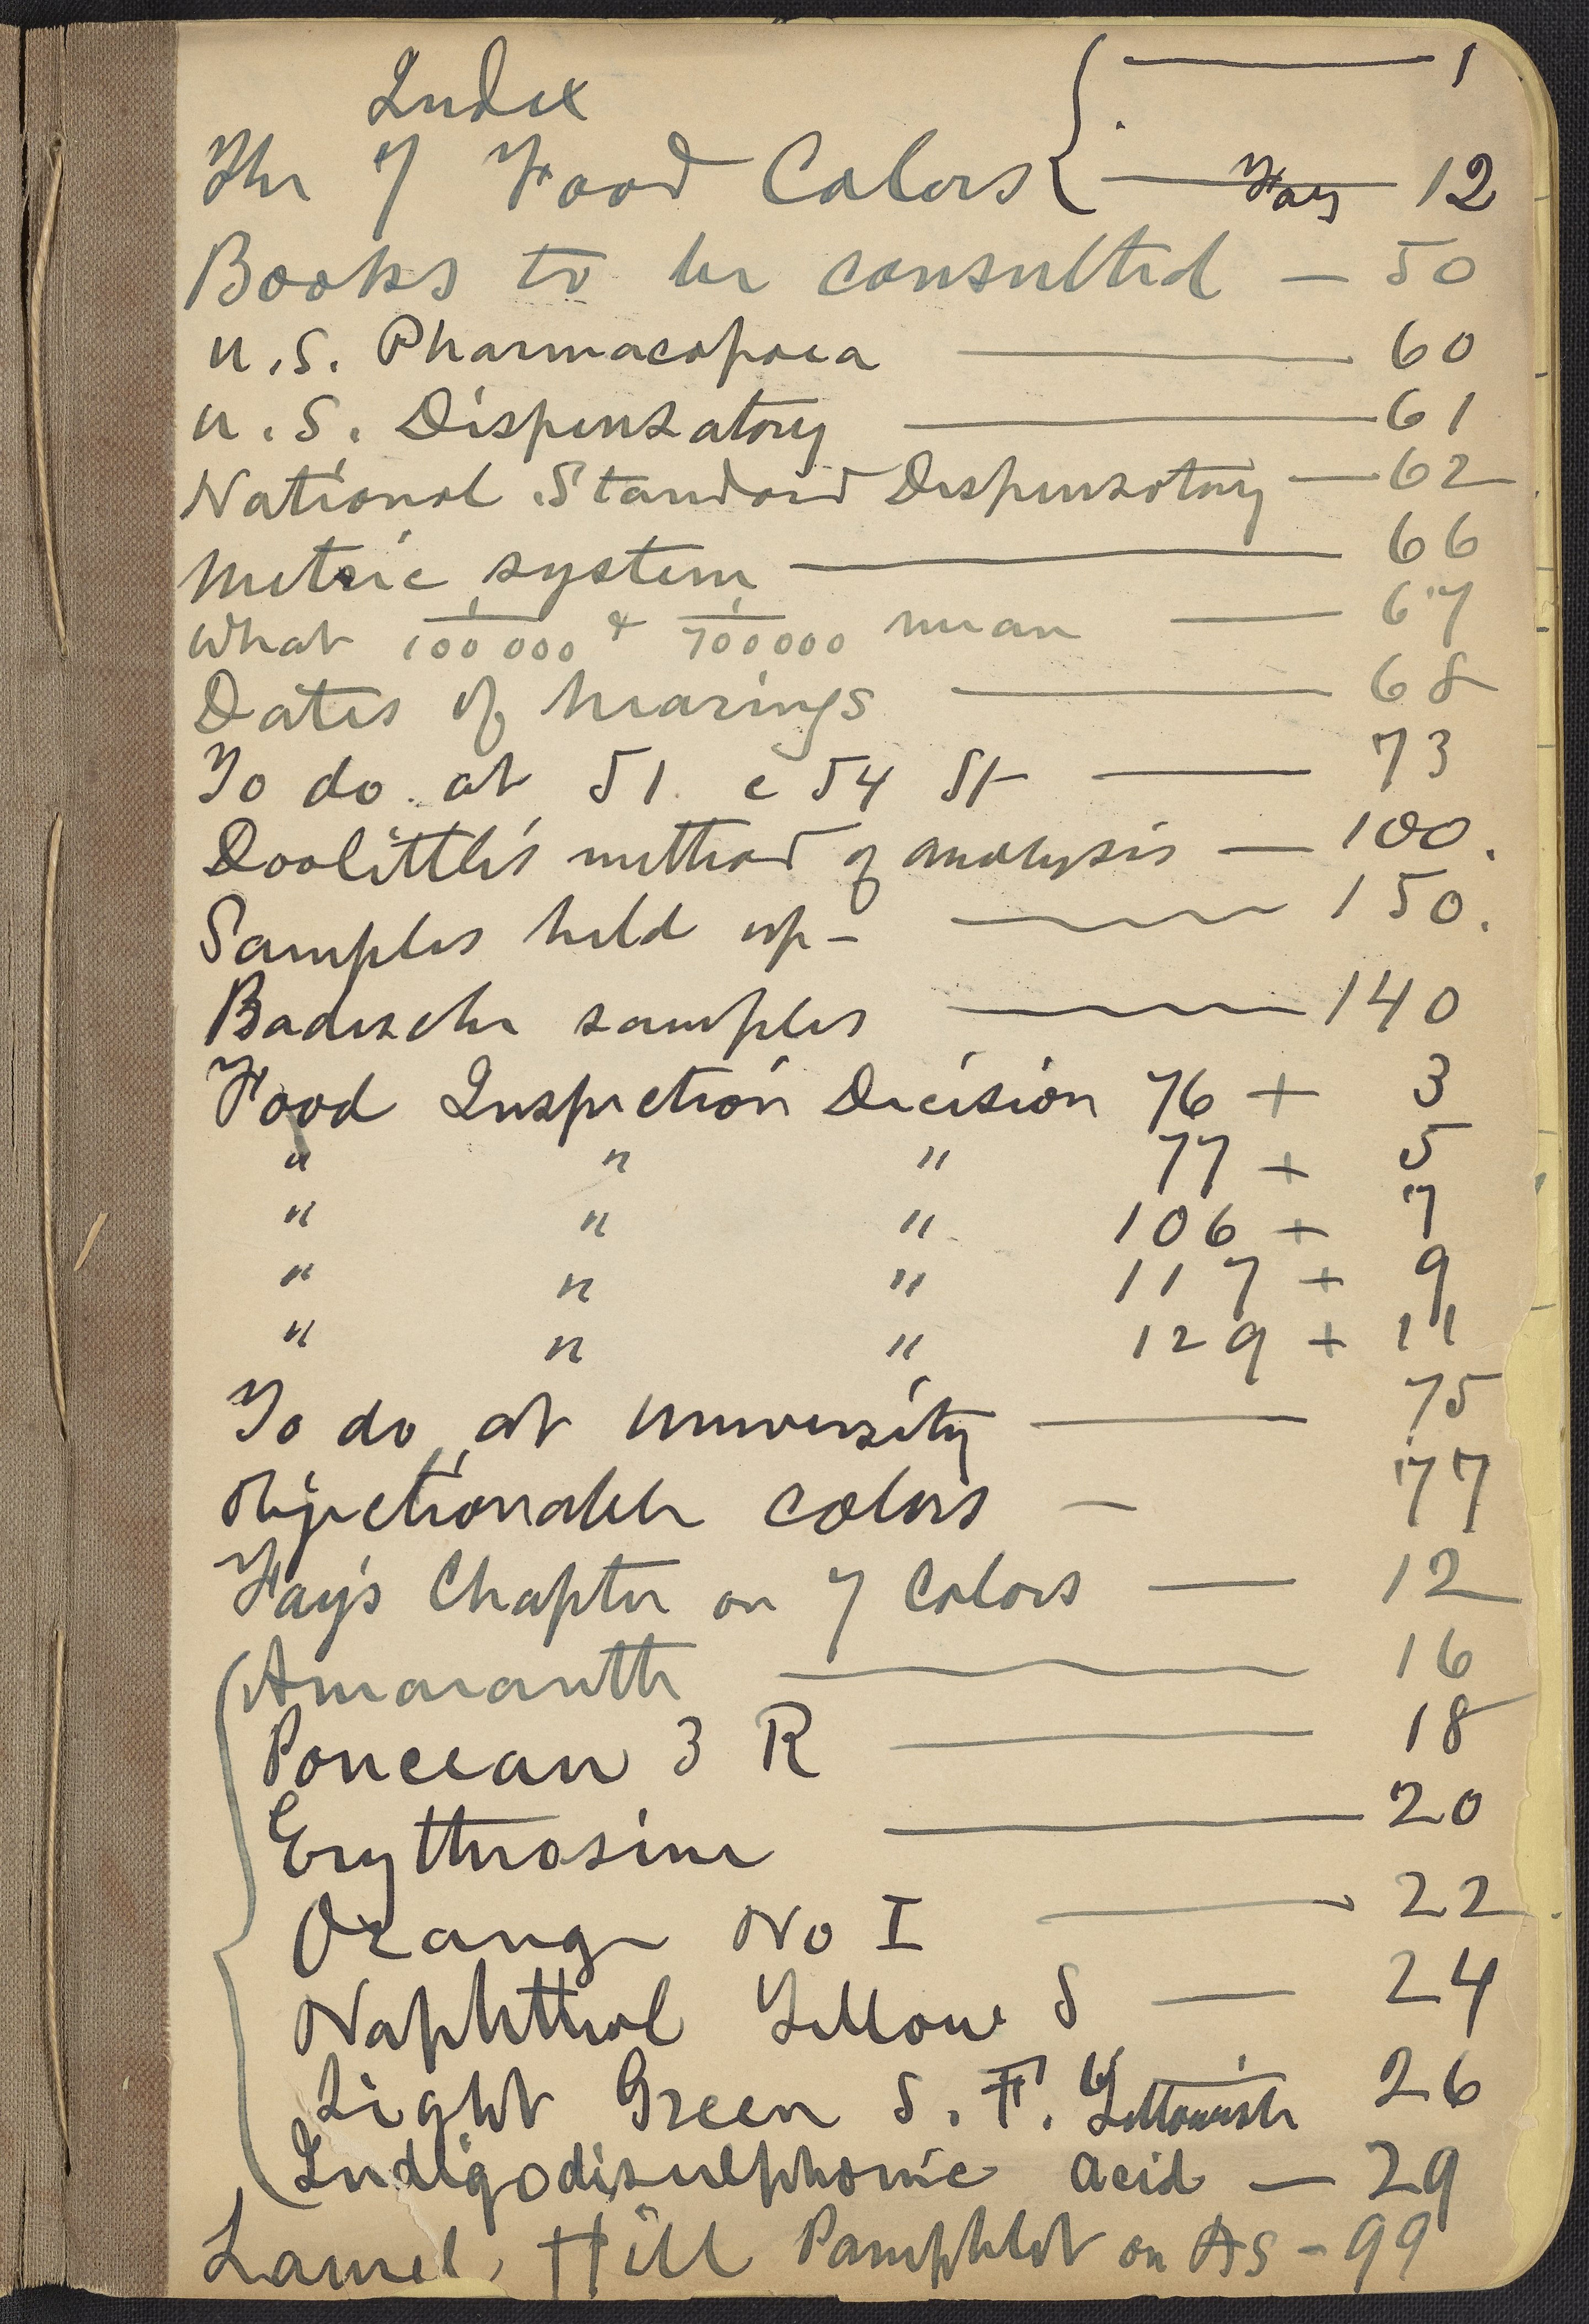 Index
{ —— 1
The 7 Food Colors { — Fay 12
Books to be consulted — 50
U.S. Pharmacopoea —— 60
U.S. Dispensatory —— 61
National Standard Dispensatory — 62
Metric system —— 66
What 1/100000 & 1/700000 mean —— 67
Dates of hearings —— 68
To do at 51 e 54 St —— 73
Doolittle's method of analysis — 100.
Samples held up - —— 150.
Badische samples —— 140
Food Inspection Decision 76 + 3
" " " 77 + 5
" " " 106 + 7
" " " 117 + 9
" " " 129 + 11
To do at University —— 75
Objectionable colors — 77
Fay's Chapter on 7 Colors —— 12
Amaranth —— 16
Ponceau 3 R —— 18
Erythrosine —— 20
Orange No I —— 22
Naphthol Yellow S —— 24
Light Green S. F. Yellowish 26
Indigodisulphonic acid — 29
Laurel Hill Pamphlet on As - 99